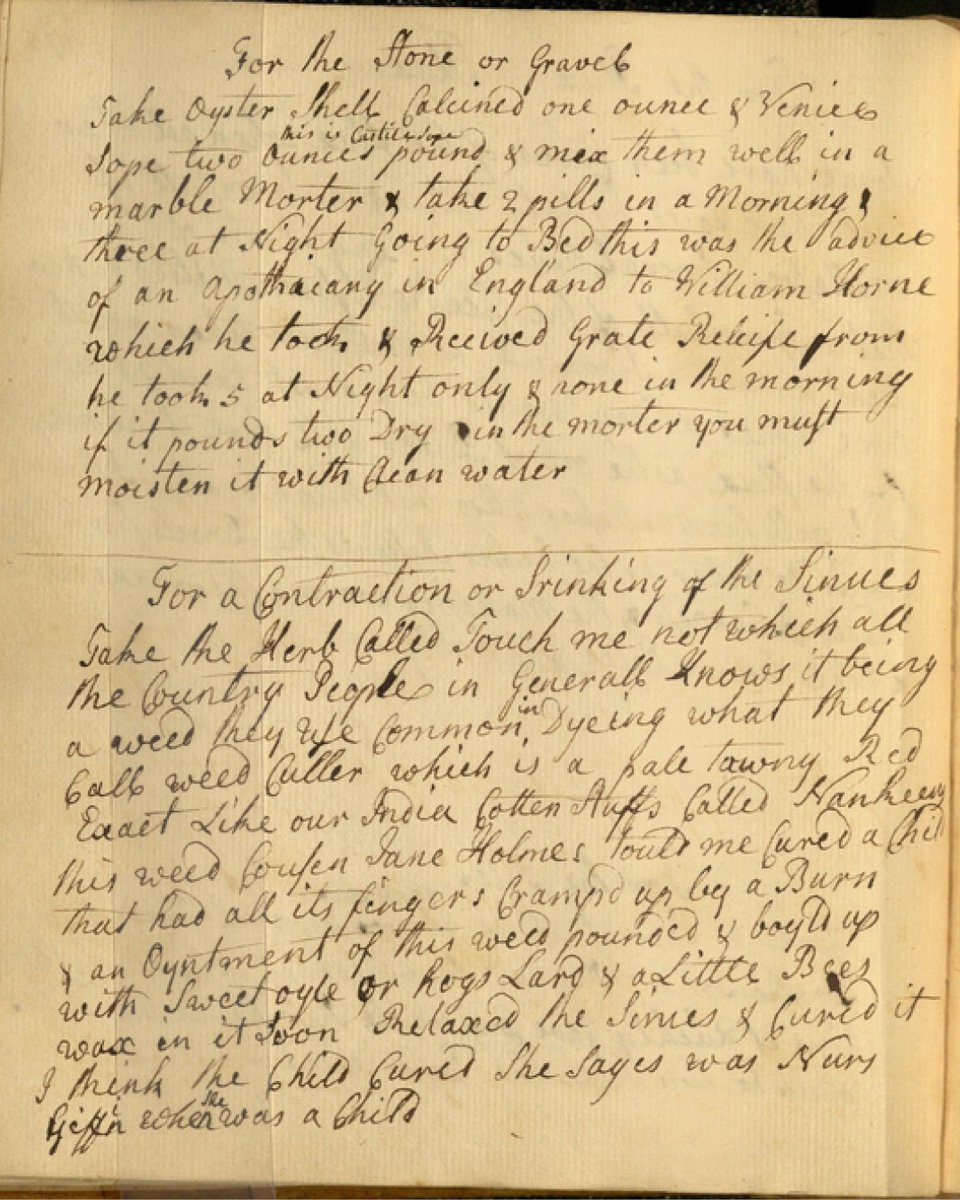 For the Stone or Gravel
Take Oyster Shell Calcined one ounce & Venice
this is Castile Sope
Sope two Ounces pound & mix them well in a
marble Morter & take 2 pills in a Morning &
three at Night Going to Bed this was the advice
of an Apothacary in England to William Horne
which he took & Received Grate Releife from
he took 5 at Night only & none in the morning
if it pounds two Dry in the morter you must
moisten it with Clean water
For a Contraction or Srinking of the Sinues
Take the Herb Called Touch me not which all
the Country People in Generall Knows it being
a weed they Use Common in Dyeing what they
Call weed Culler which is a pale tawny Red
Exact Like our India Cotten Stuffs Called Nankeen
this weed Cousen Jane Holmes tould me Cured a Child
that had all its fingers Cramp'd up by a Burn
& an Oyntment of this weed pounded & boyld up
with Sweet oyle or hogs Lard & a Little Bees
wax in it Soon Relaxed the Sinues & Cured it
I think the Child Cured She Sayes was Nurs
Giffin when she was a Child